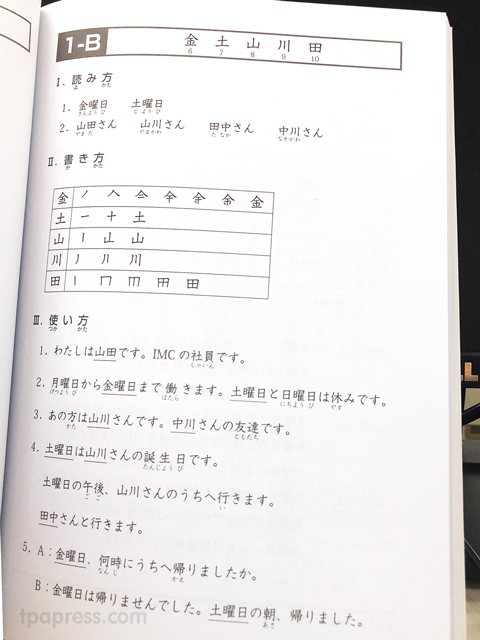 1-B 金 土 山 川 田
6 7 8 9 10
Ⅰ. 読み方
よ かた
1. 金曜日 土曜日
きんよう び ど よう び
2. 山田さん 山川さん 田中さん 中川さん
やま だ やまかわ た なか なかがわ
Ⅱ. 書き方
か かた
金 ノ 人 亼 仐 全 金
土 一 十 土
山 丨 凵 山
川 丿 川 川
田 丨 冂 田
Ⅲ. 使い方
つか かた
1. わたしは山田です。IMCの社員です。
しゃいん
2. 月曜日から金曜日まで働きます。土曜日と日曜日は休みです。
げつよう び はたら にちよう び やす
3. あの方は山川さんです。中川さんの友達です。
かた ともだち
4. 土曜日は山川さんの誕生日です。
たんじょう び
土曜日の午後、山川さんのうちへ行きます。
ご ご い
田中さんと行きます。
5. A：金曜日、何時にうちへ帰りましたか。
なん じ かえ
B：金曜日は帰りませんでした。土曜日の朝、帰りました。
あさ
tpapress.com
L